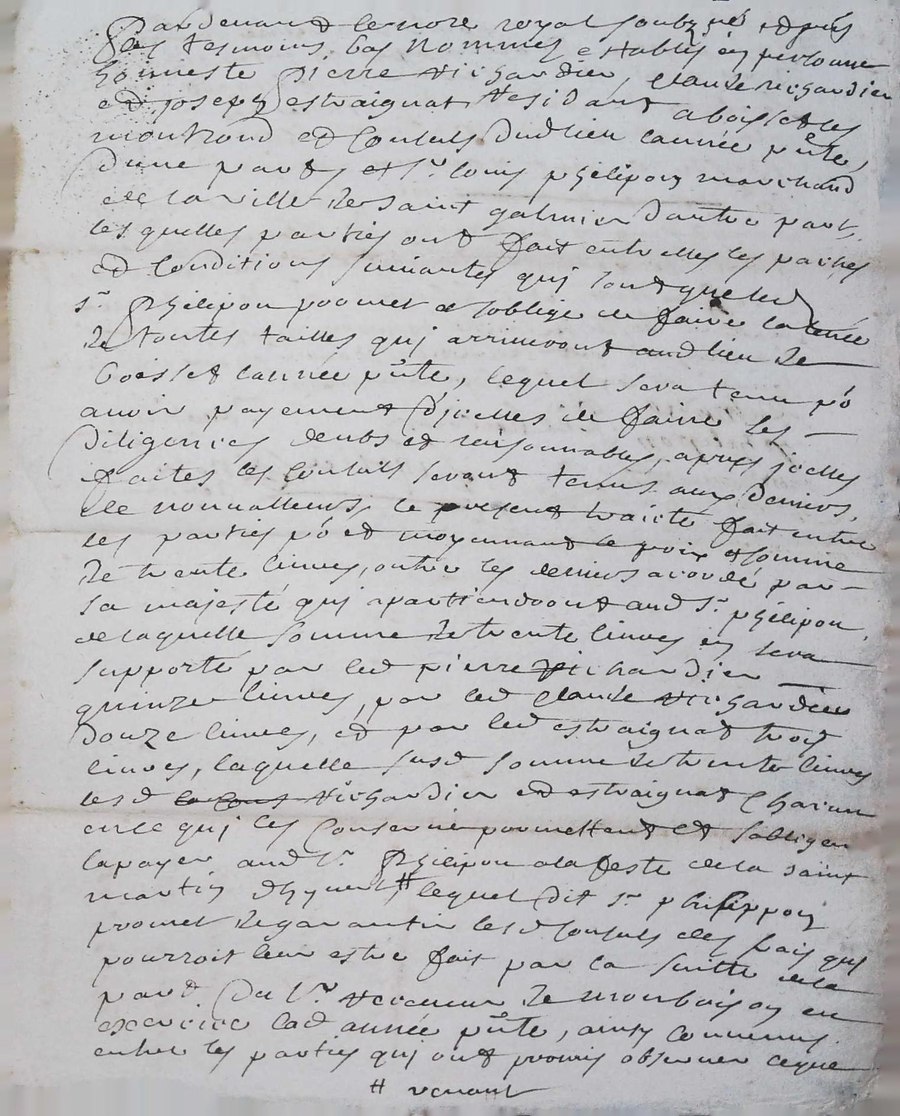 Pardevant le nore royal soubzné et puis
les tesmoins bas nommés establis en personne
honneste pierre Richardier, claude richardier
et joseph estraignat Residant a boisset les
montrond et Consuls dudlieu lannée pnte,
dune part, et sr. louis philipon marchand
de la ville de saint galmier dautre part,
lesquelles parties ont fait entrelles les pactes
et Conditions suivantes qui sont que led
sr. philipon promet et soblige de faire la levée
de toutes tailles qui arriveront audlieu de
boisset lannée pnte, lequel sera tenu po
avoir payement dicelles de faire les
diligences deubs et raisonnables, apres icelles
faites les Consuls seront tenus aux deniers
de nonvalleurs, le present traicté fait entre
les parties po et moyennant le prix et somme
de trente livres, outre les deniers acordé par
sa majesté qui apartiendront aud sr. philipon
de laquelle somme de trente livres en sera
supporté par led pierre Richardier
quinze livres, par led claude Richardier
douze livres, et par led estraignat trois
livres, laquelle susd somme de trente livres
lesd Richardier et estraignat Chacun
en ce qui les Conserne promettent et sobligen
la payer aud sr. philipon a la feste de la saint
martin dhyvert # lequel dit sr. philippon
promet de garantir lesd Consuls des frais qui
pourroit leur estre fait par la suitte de la
part du sr. Receveur de montbrison en
exercice lad année pnte, ainsy convenus
entre les parties qui ont promis observer ceque
# venant